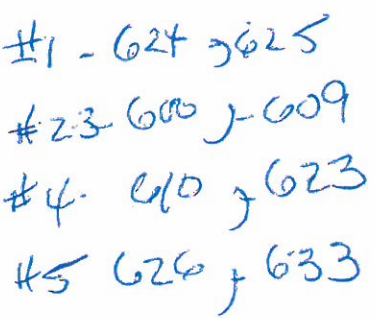 #1 - 624 , 625
#23- 600 , - 609
#4- 610 , 623
#5 626 , 633